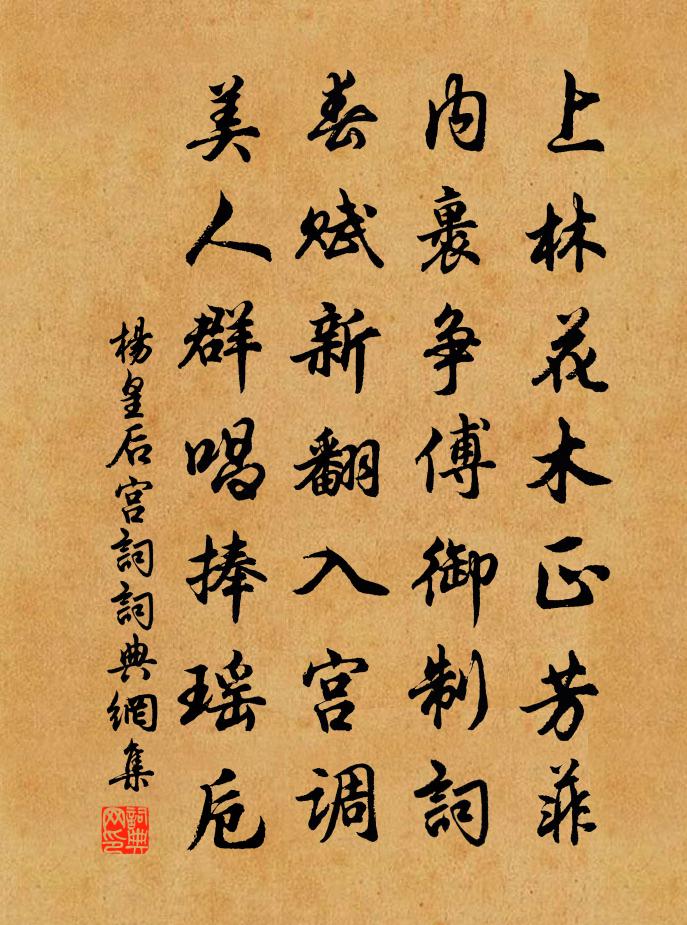 上林花木正芳菲
内裏争傳御制詞
春赋新翻入宫调
美人群唱捧瑶卮
楊皇后宫詞詞典網集
詞典网印